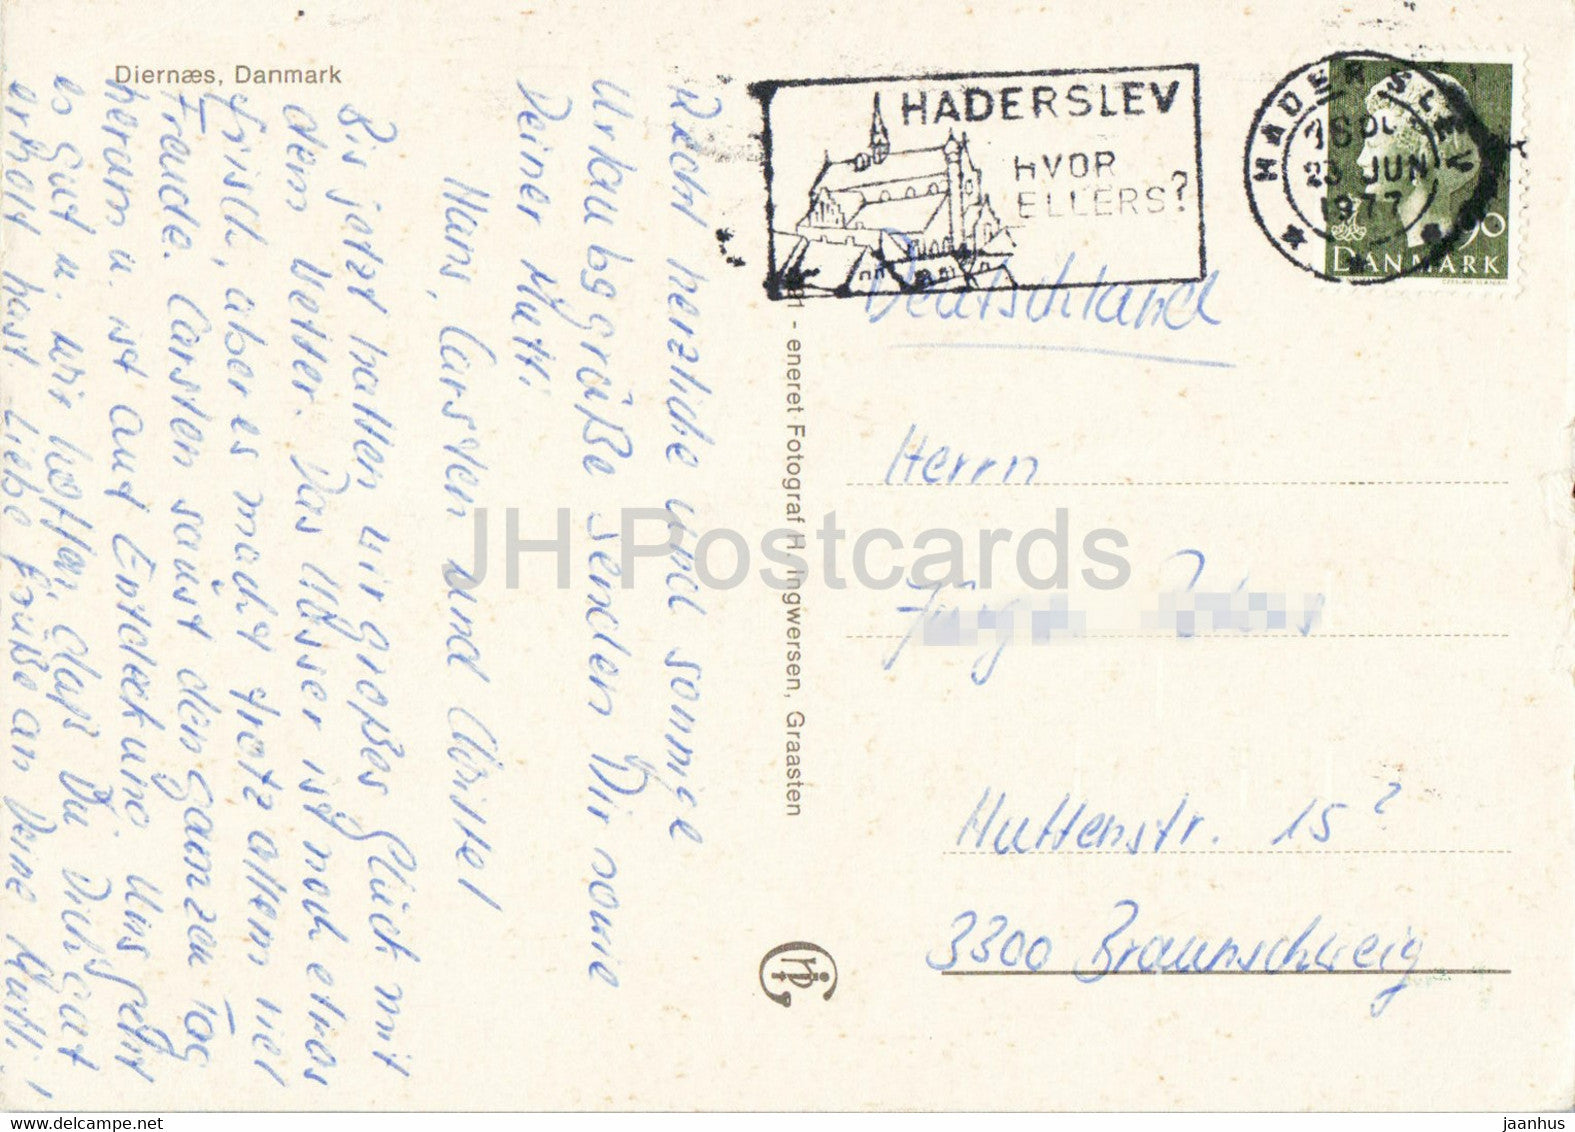 Diernæs, Danmark
HADERSLEV
HVOR
ELLERS?
HADERSLEV
23 JUN
1977
90
DANMARK
CZESLAW SLANIA
Deutschland
Herrn
Huttenstr. 15
3300 Braunschweig
eneret Fotograf H. Ingwersen, Graasten
Recht herzliche und sonnige
Urlaubsgrüße senden Dir sowie
Deiner Mutti
Hans, Carsten und Christel
Bis jetzt hatten wir großes Glück mit
dem Wetter. Das Wasser ist noch etwas
frisch, aber es macht trotz allem viel
Freude. Carsten saust den ganzen Tag
herum u. ist auf Entdeckung. Uns geht
es gut u. wir hoffen, daß Du Dich gut
erholt hast. Liebe Grüße an Deine Mutti!
JH Postcards
www.delcampe.net
jaanhus